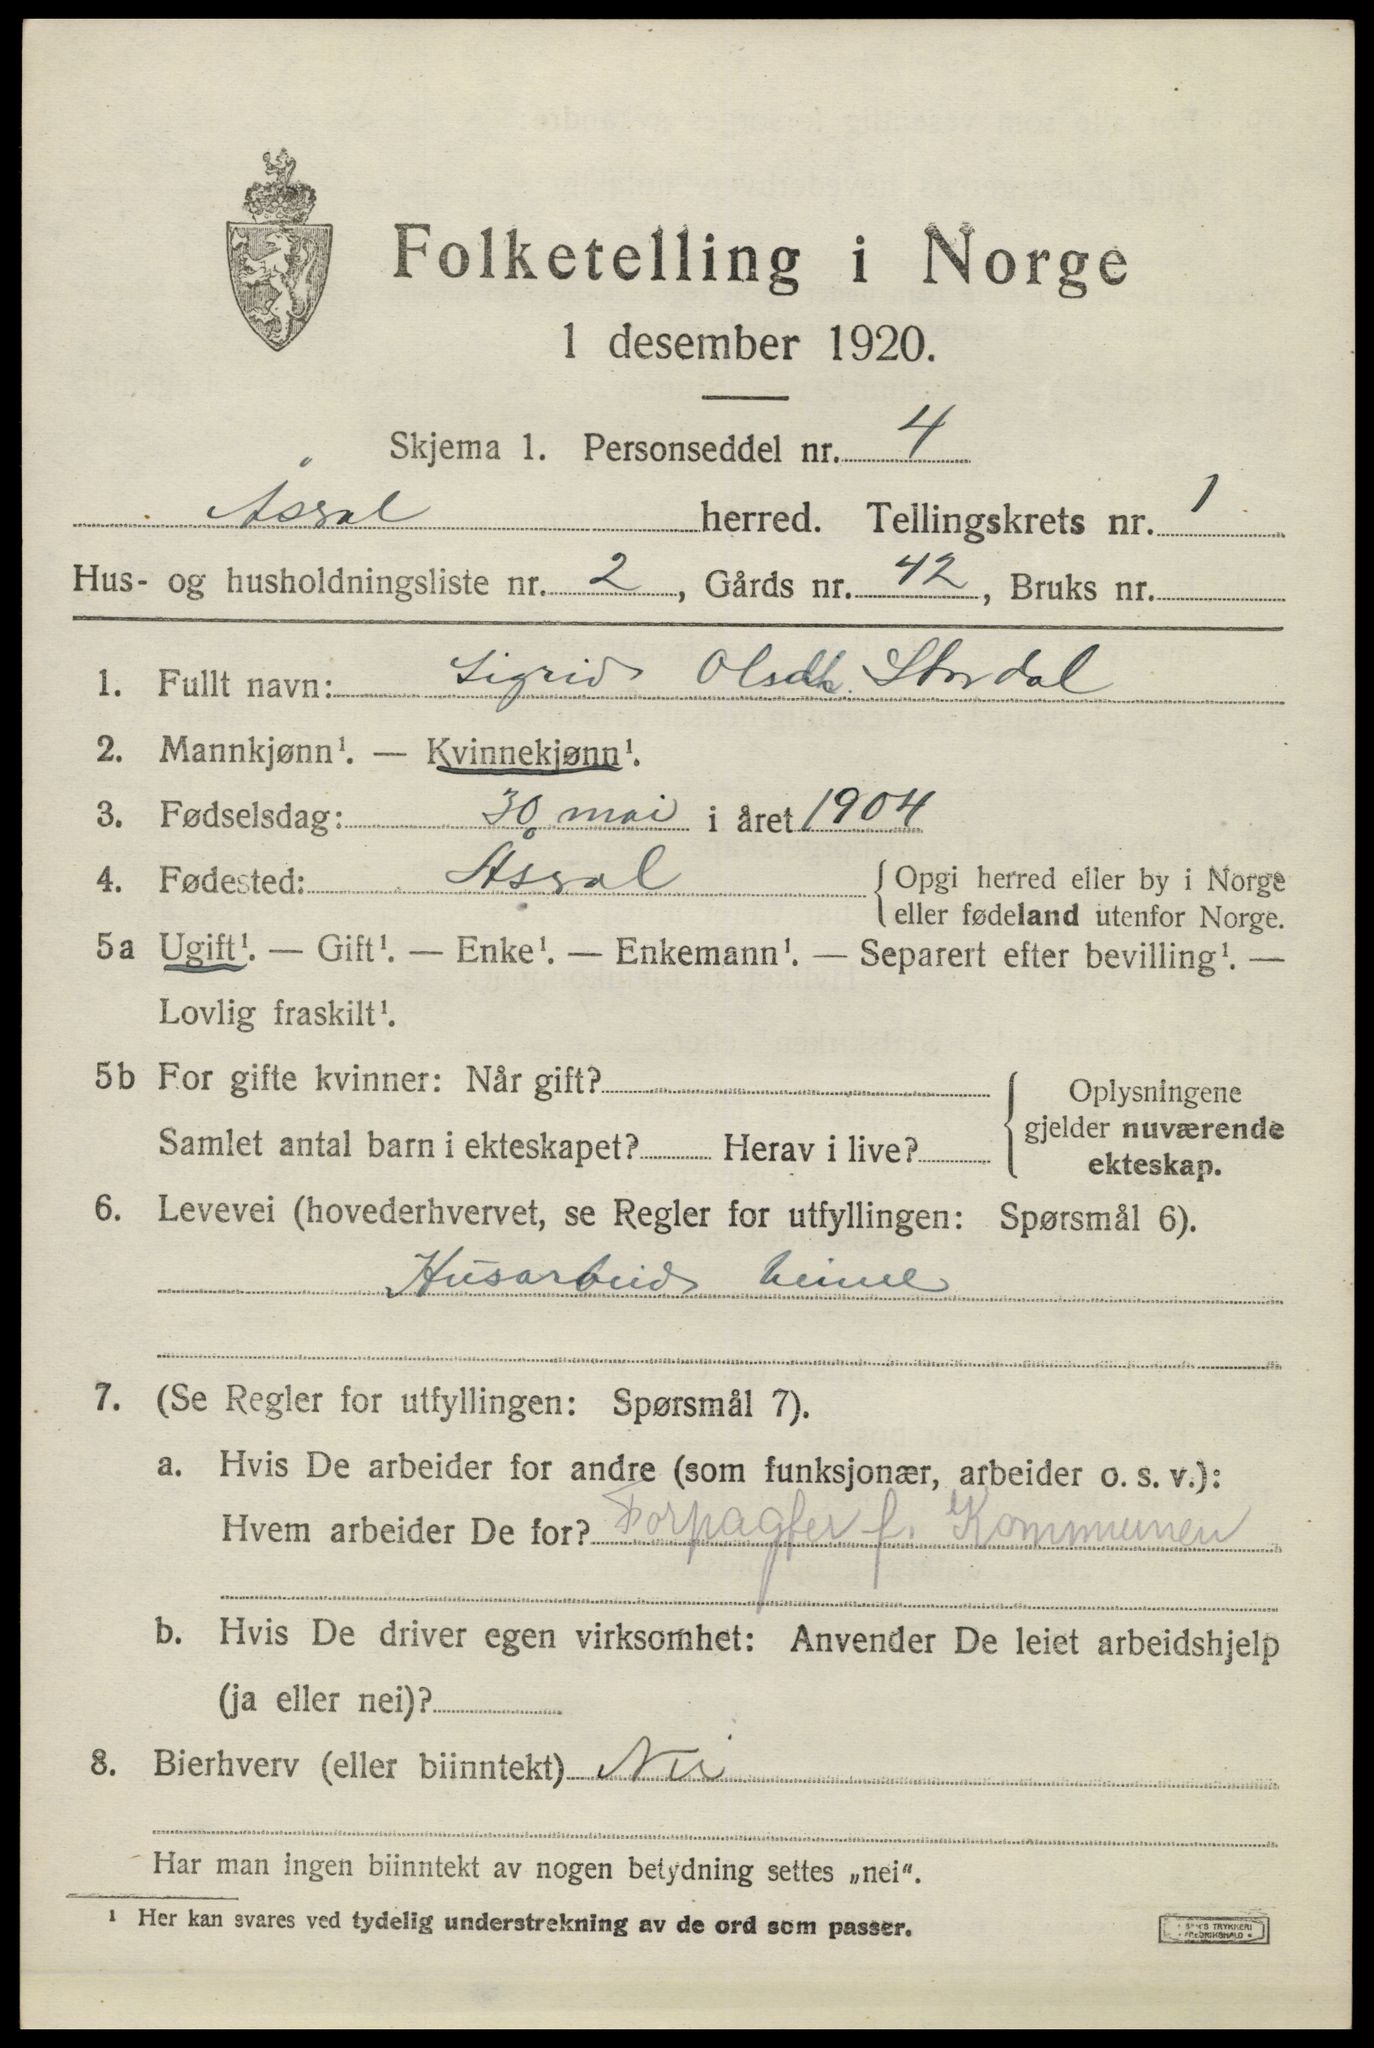 Folketelling i Norge
1 desember 1920.
Skjema 1. Personseddel nr. 4
Åseral herred. Tellingskrets nr. 1
Hus- og husholdningsliste nr. 2, Gårds nr. 42, Bruks nr.
1. Fullt navn: Sigrid Olsdtr. Stordal
2. Mannkjønn¹. — Kvinnekjønn¹.
3. Fødselsdag: 30 mai i året 1904
4. Fødested: Åseral {Opgi herred eller by i Norge
eller fødeland utenfor Norge.
5a Ugift¹. — Gift¹. — Enke¹. — Enkemann¹. — Separert efter bevilling¹. —
Lovlig fraskilt¹.
5b For gifte kvinner: Når gift?
Samlet antal barn i ekteskapet? Herav i live?
Oplysningene
gjelder nuværende
ekteskap.
6. Levevei (hovederhvervet, se Regler for utfyllingen: Spørsmål 6).
Husarbeid heime
7. (Se Regler for utfyllingen: Spørsmål 7).
a. Hvis De arbeider for andre (som funksjonær, arbeider o. s. v.):
Hvem arbeider De for? Forpagter f. Kommunen
b. Hvis De driver egen virksomhet: Anvender De leiet arbeidshjelp
(ja eller nei)?
8. Bierhverv (eller biinntekt) Nei
Har man ingen biinntekt av nogen betydning settes „nei“.
¹ Her kan svares ved tydelig understrekning av de ord som passer.
TRYKKERI
FREDRIKSHALD